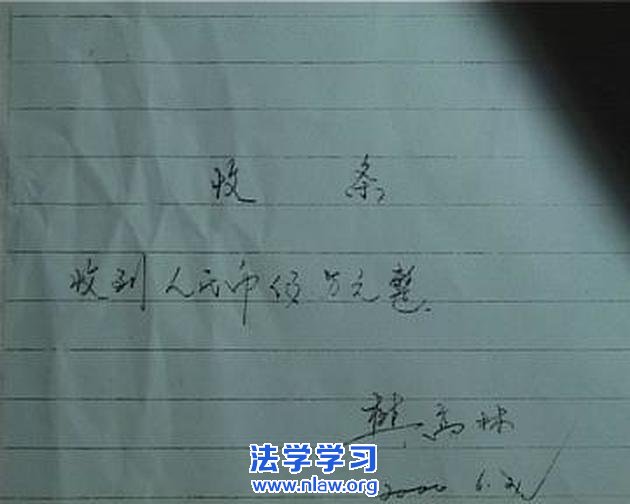 收条
收到人民币伍万元整
樊高林
2000.1.21
法学学习
www.nlaw.org